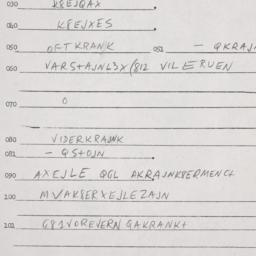 030
040 K8EJXES
050 OFTKRANK 051 - QKRAJN
060 VARS+AJNL3X/812 VILERUEN
070 O
080 VIDERKRAJNK
081 - QS+OJN
090 AXEJLE QGL AKRAJNK8ERMENCL
100 MVAK8ERXEJLEZAJN
101 G81VOREVERN GAKRANK+